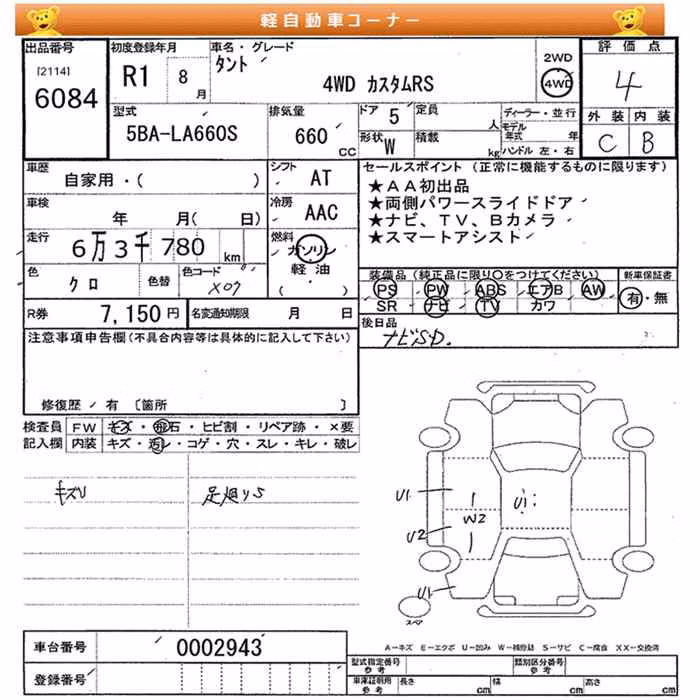 軽自動車コーナー
出品番号
[2114]
6084
初度登録年月
R1 8 月
車名・グレード
タント
4WD カスタムRS
2WD
4WD
評価点
4
外装 内装
C B
型式
5BA-LA660S
排気量
660 CC
ドア 5
形状 W
定員 人
積載 kg
ディーラー・並行
モデル年式 年
ハンドル 左・右
車歴
自家用・( )
シフト AT
車検
年 月( 日)
冷房 AAC
走行
6万3千780 km
燃料 ガソリン
軽油
( )
色
クロ
色替
色コード
X07
R券 7,150円
名変通知期限 月 日
セールスポイント (正常に機能するものに限ります)
★AA初出品
★両側パワースライドドア
★ナビ、TV、Bカメラ
★スマートアシスト
装備品(純正品に限り○をつけてください)
PS PW ABS エアB AW
SR ナビ TV カワ
新車保証書
有・無
後日品
ナビSD.
注意事項申告欄(不具合内容等は具体的に記入して下さい)
修復歴 / 有 [箇所 ]
検査員 FW キズ・飛石・ヒビ割・リペア跡・×要
記入欄 内装 キズ・汚レ・コゲ・穴・スレ・キレ・破レ
キズU
足廻りS
U1
U2
W2
U1
U1
スペア
A−キズ E−エクボ U−凹み W−補修跡 S−サビ C−腐食 XX−交換済
車台番号 0002943
登録番号
型式指定番号 参考
類別区分番号 参考
車庫証明用 参考
長さ cm
幅 cm
高さ cm